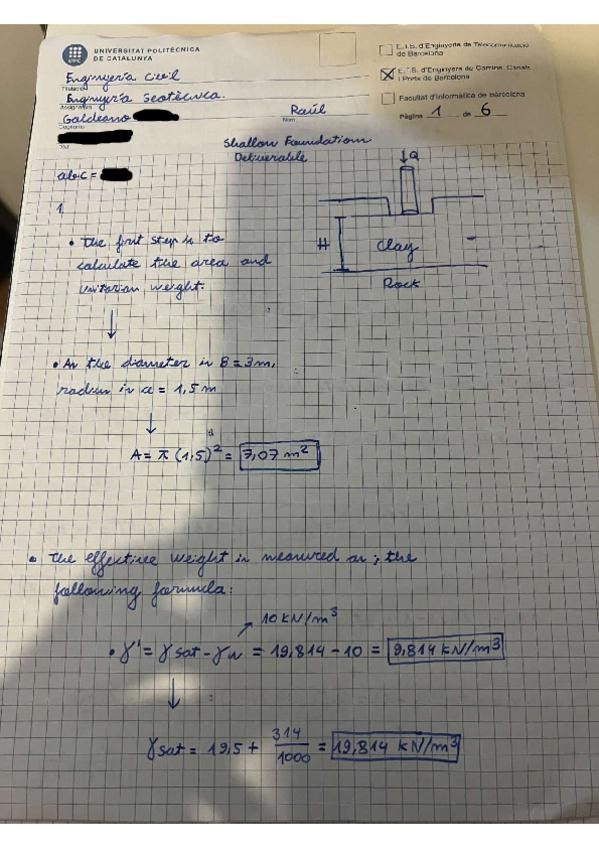 UNIVERSITAT POLITÈCNICA
DE CATALUNYA
UPC
E.T.S. d'Enginyeria de Telecomunicació
de Barcelona
E.T.S. d'Enginyers de Camins, Canals
i Ports de Barcelona
Facultat d'Informàtica de Barcelona
Pàgina 1 de 6
Enginyería Civil
Titulació
Enginyería Geotècnica.
Assignatura
Galdeano
Raúl
Cognoms
Nom
DNI
Shallow Foundation
Deliverable
abc =
1.
Q
H
Clay
Rock
• The first step is to
calculate the area and
unitarian weight.
• As the diameter is B = 3m,
radius is a = 1,5 m
A = π (1,5)² = 7,07 m²
• The effective weight is measured as; the
following formula:
10 KN/m³
• γ' = γsat - γw = 19,814 - 10 = 9,814 KN/m³
γsat = 19,5 + 314/1000 = 19,814 KN/m³